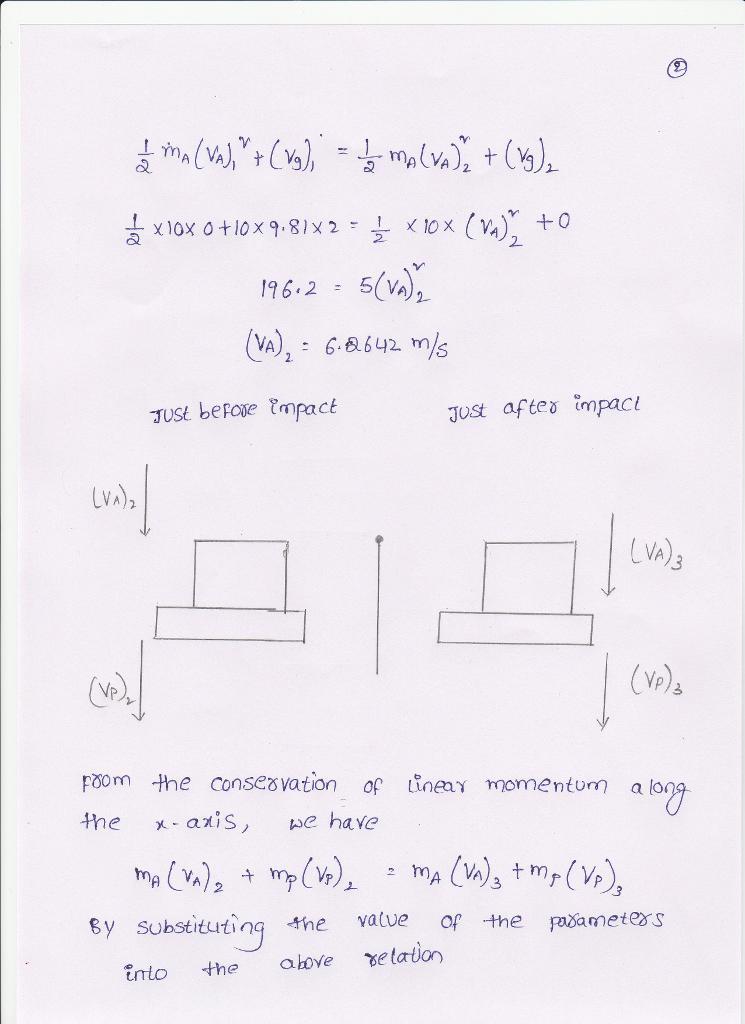 ②
½ mA (VA)₁² + (Vg)₁ = ½ mA (VA)₂² + (Vg)₂
½ × 10 × 0 + 10 × 9.81 × 2 = ½ × 10 × (VA)₂² + 0
196.2 = 5(VA)₂²
(VA)₂ = 6.2642 m/s
Just before impact Just after impact
(VA)₂
(VA)₃
(VP)₂ (VP)₃
From the conservation of linear momentum along
the x-axis, we have
mA (VA)₂ + mP (VP)₂ = mA (VA)₃ + mP (VP)₃
By substituting the value of the parameters
into the above relation